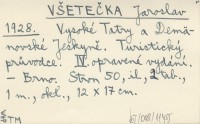 VŠETEČKA Jaroslav
1928. Vysoké Tatry a Demä-
novské Jeskyně. Turistický
průvodce. IV. opravené vydání.
- Brno. Stron 50, il., 2 tab.,
1 m., okł., 12 x 17 cm.